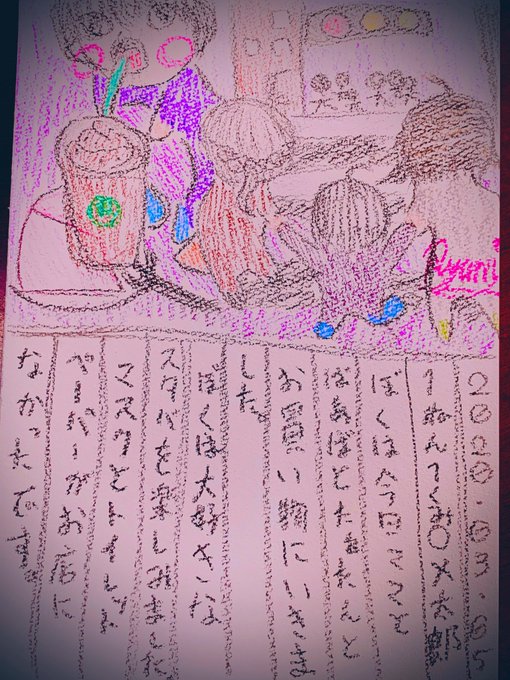 2020
1ねん 〇×太郎
ぼくは今日ママと
ばあばとたまたんと
お買い物にいきま
した。
ぼくは大好きな
スタバを楽しみました
マスクとトイレット
ペーパーがお店に
なかったです。